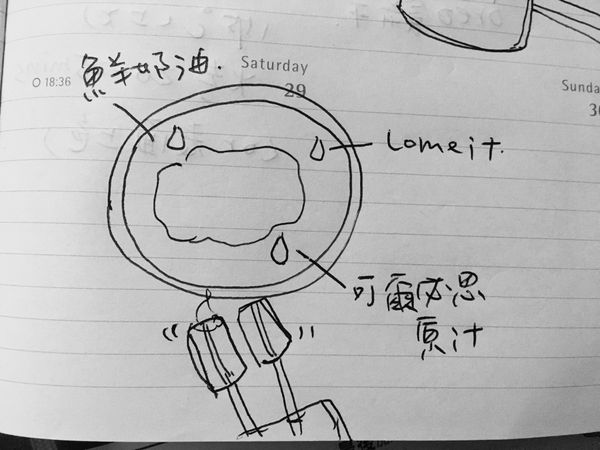 Saturday
29
18:36
鮮羊奶油.
Sunda
30
Lomeit.
可爾必思
原汁